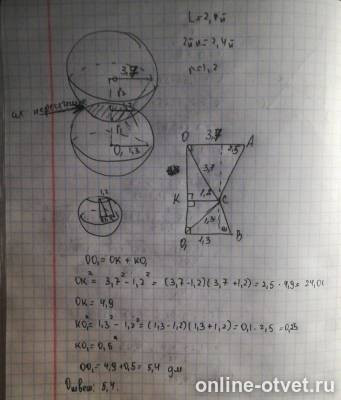 L = 2,4π
2πr = 2,4π
r = 1,2
O 3,7
O₁ 1,3
1,2
O 3,7 A
2,5
3,7
K 1,2 C
1,3
O₁ 1,3 B
OO₁ = OK + KO₁
OK² = 3,7² - 1,2² = (3,7 - 1,2)(3,7 + 1,2) = 2,5 · 4,9 = 24,01
OK = 4,9
KO₁² = 1,3² - 1,2² = (1,3 - 1,2)(1,3 + 1,2) = 0,1 · 2,5 = 0,25
KO₁ = 0,5
OO₁ = 4,9 + 0,5 = 5,4 дм
Ответ: 5,4.
online-otvet.ru